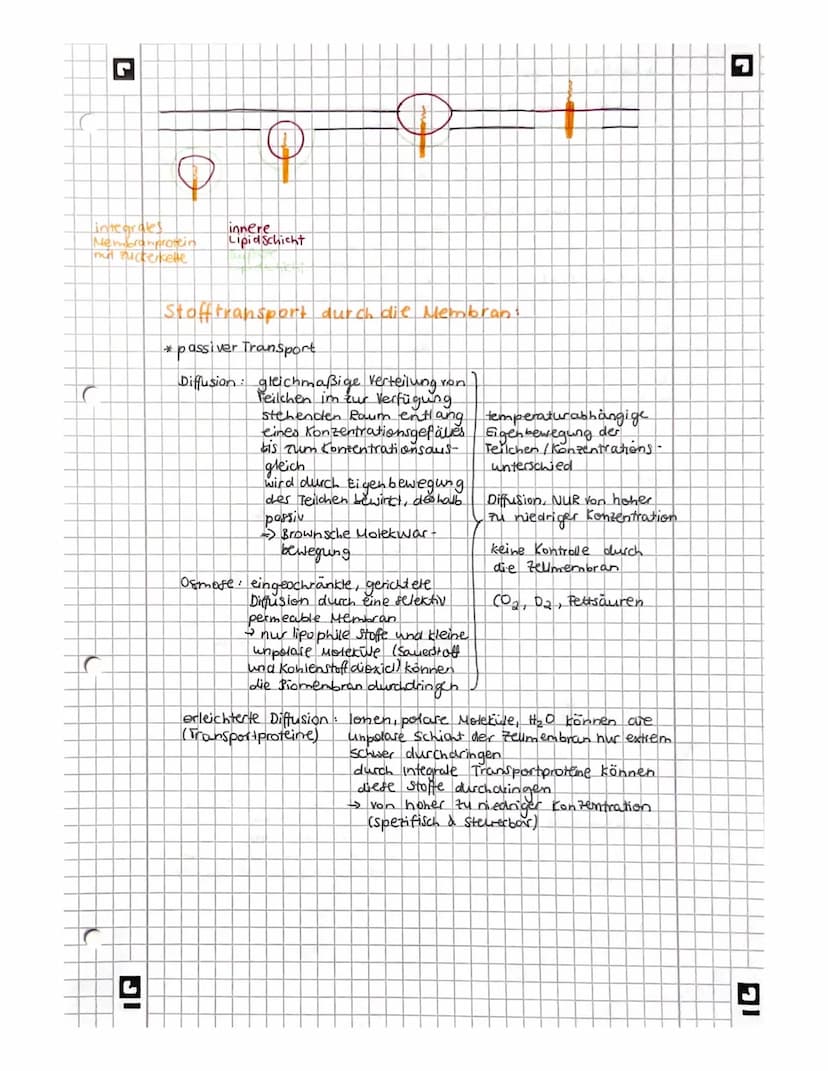 integrales
Membranprotein
mit Zuckerkette
innere
Lipidschicht
Stofftransport durch die Membran:
* passiver Transport
Diffusion: gleichmaßige Verteilung von
Teilchen im zur Verfügung
stehenden Raum entlang
eines Konzentrationsgefälles
bis zum Konzentrationsaus-
gleich
wird durch Eigenbewegung
des Teilchen bewirkt, deshalb
passiv
=> Brownsche Molekular-
bewegung
temperaturabhängige
Eigenbewegung der
Teilchen / Konzentrations-
unterschied
Diffusion, NUR von hoher
zu niedriger Konzentration
keine Kontrolle durch
die Zellmembran
CO2, O2, Fettsäuren
Osmose: eingeschränkte, gerichtete
Diffusion durch eine selektiv
permeable Membran
→ nur lipophile Stoffe und kleine
unpolare Moleküle (Sauerstoff
und Kohlenstoffdioxid) können
die Biomembran durchdringen
erleichterte Diffusion: Ionen, polare Moleküle, H2O können die
(Transportproteine) unpolare Schicht der Zellmembran nur extrem
schwer durchdringen
durch integrale Transportproteine können
diese Stoffe durchdringen
→ von hoher zu niedriger Konzentration
(spezifisch & steuerbar)